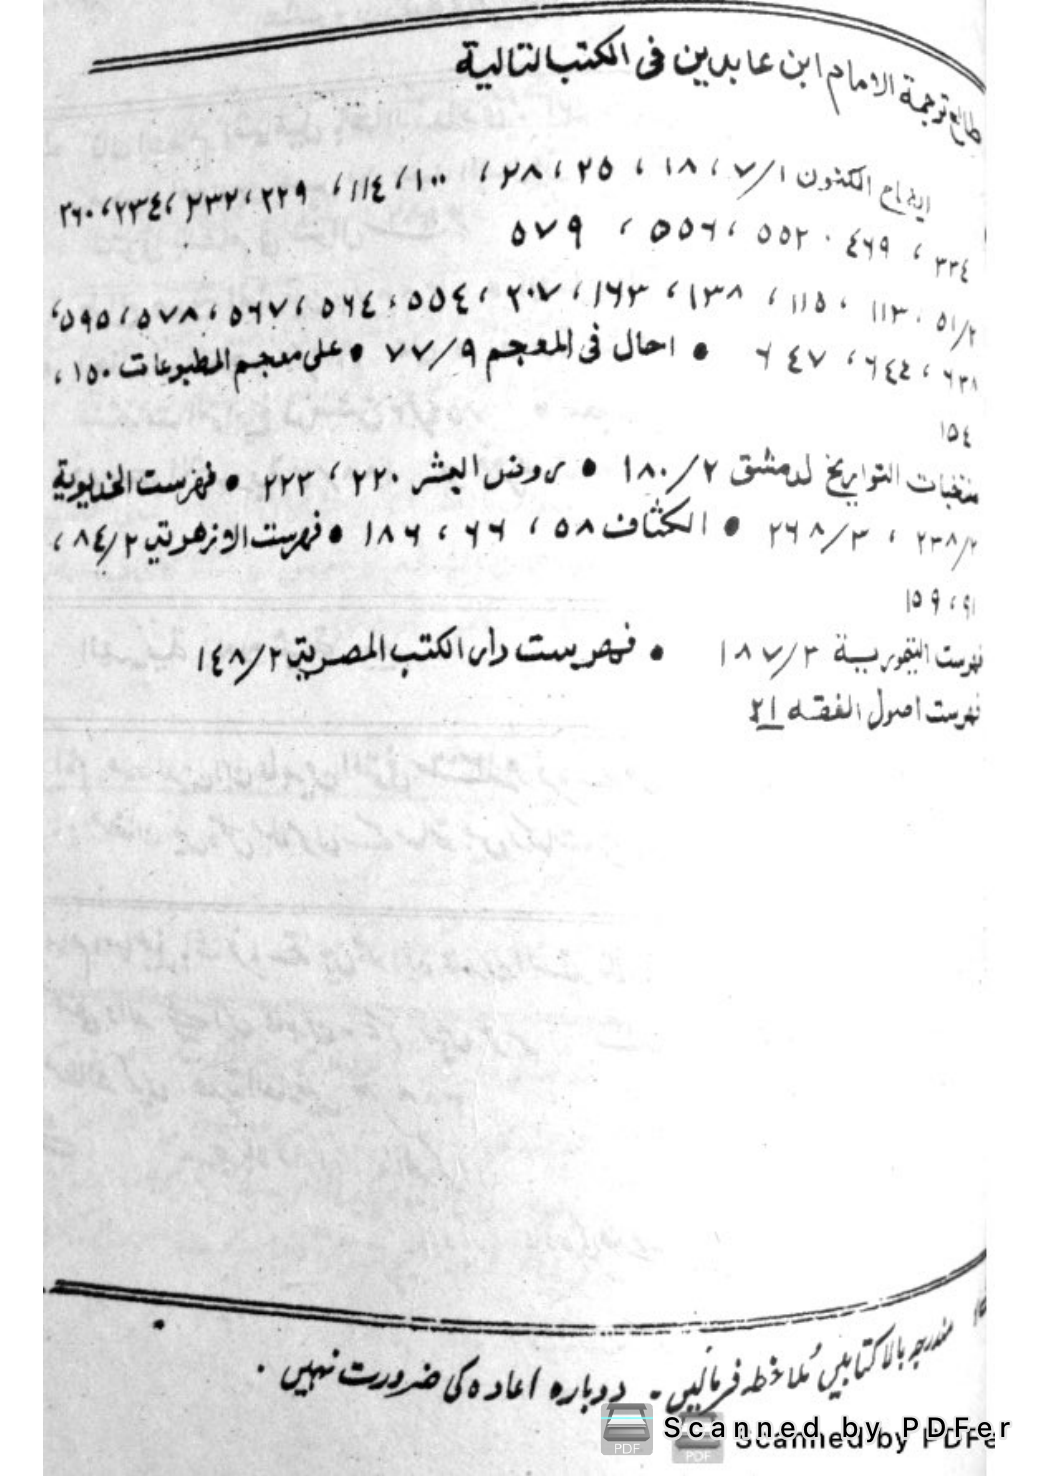 طالع ترجمة الامام ابن عابدين فى الكتب التالية
ايضاح المكنون ١/٧، ١٨، ٢٥، ٢٨، ١٠٠، ١١٤، ٢٢٩، ٢٣٢، ٢٣٤، ٢٦٠،
٣٣٤، ٤٦٩، ٥٥٢، ٥٥٦، ٥٧٩
٥١/٢، ١١٣، ١١٥، ١٣٨، ١٦٣، ٢٠٧، ٥٥٤، ٥٦٤، ٥٦٧، ٥٧٨، ٥٩٥،
٦٣٨، ٦٤٤، ٦٤٧ • احال فى المعجم ٧٧/٩ • على معجم المطبوعات ١٥٠،
١٥٤
منتخبات التواريخ لدمشق ١٨٠/٢ • روض البشر ٢٢٠، ٢٢٣ • فهرست الخديوية
٢٣٨/٢، ٢٦٨/٣ • الكشاف ٥٨، ٦٦، ١٨٦ • فهرست الازهرية ٨٤/٢،
٩١، ١٥٩
فهرست التيمورية ١٨٧/٣ • فهرست دار الكتب المصرية ١٤٨/٢
فهرست اصول الفقه ٢١
مندرجہ بالا کتابیں ملاحظہ فرمائیں۔ دوبارہ اعادہ کی ضرورت نہیں۔
Scanned by PDFer
Scanned by PDFe